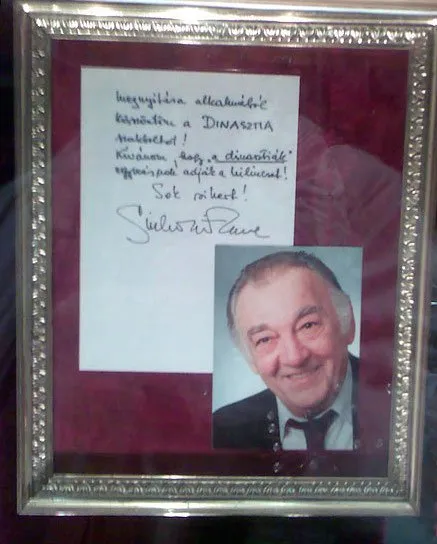 megnyitása alkalmából
köszöntöm a DINASZTIA
szakboltot!
Kívánom, hogy „a dinasztiák"
egymásnak adják a kilincset!
Sok sikert!